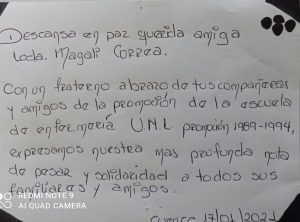 ① Descansa en paz querida amiga
Lcda. Magali Correa.
Con un fraterno abrazo de tus compañeras
y amigos de la promoción de la escuela
de enfermería U.N.L promoción 1989-1994,
expresamos nuestra mas profunda nota
de pesar y solidaridad a todos sus
familiares y amigos.
17/01/2021
REDMI NOTE 9
AI QUAD CAMERA